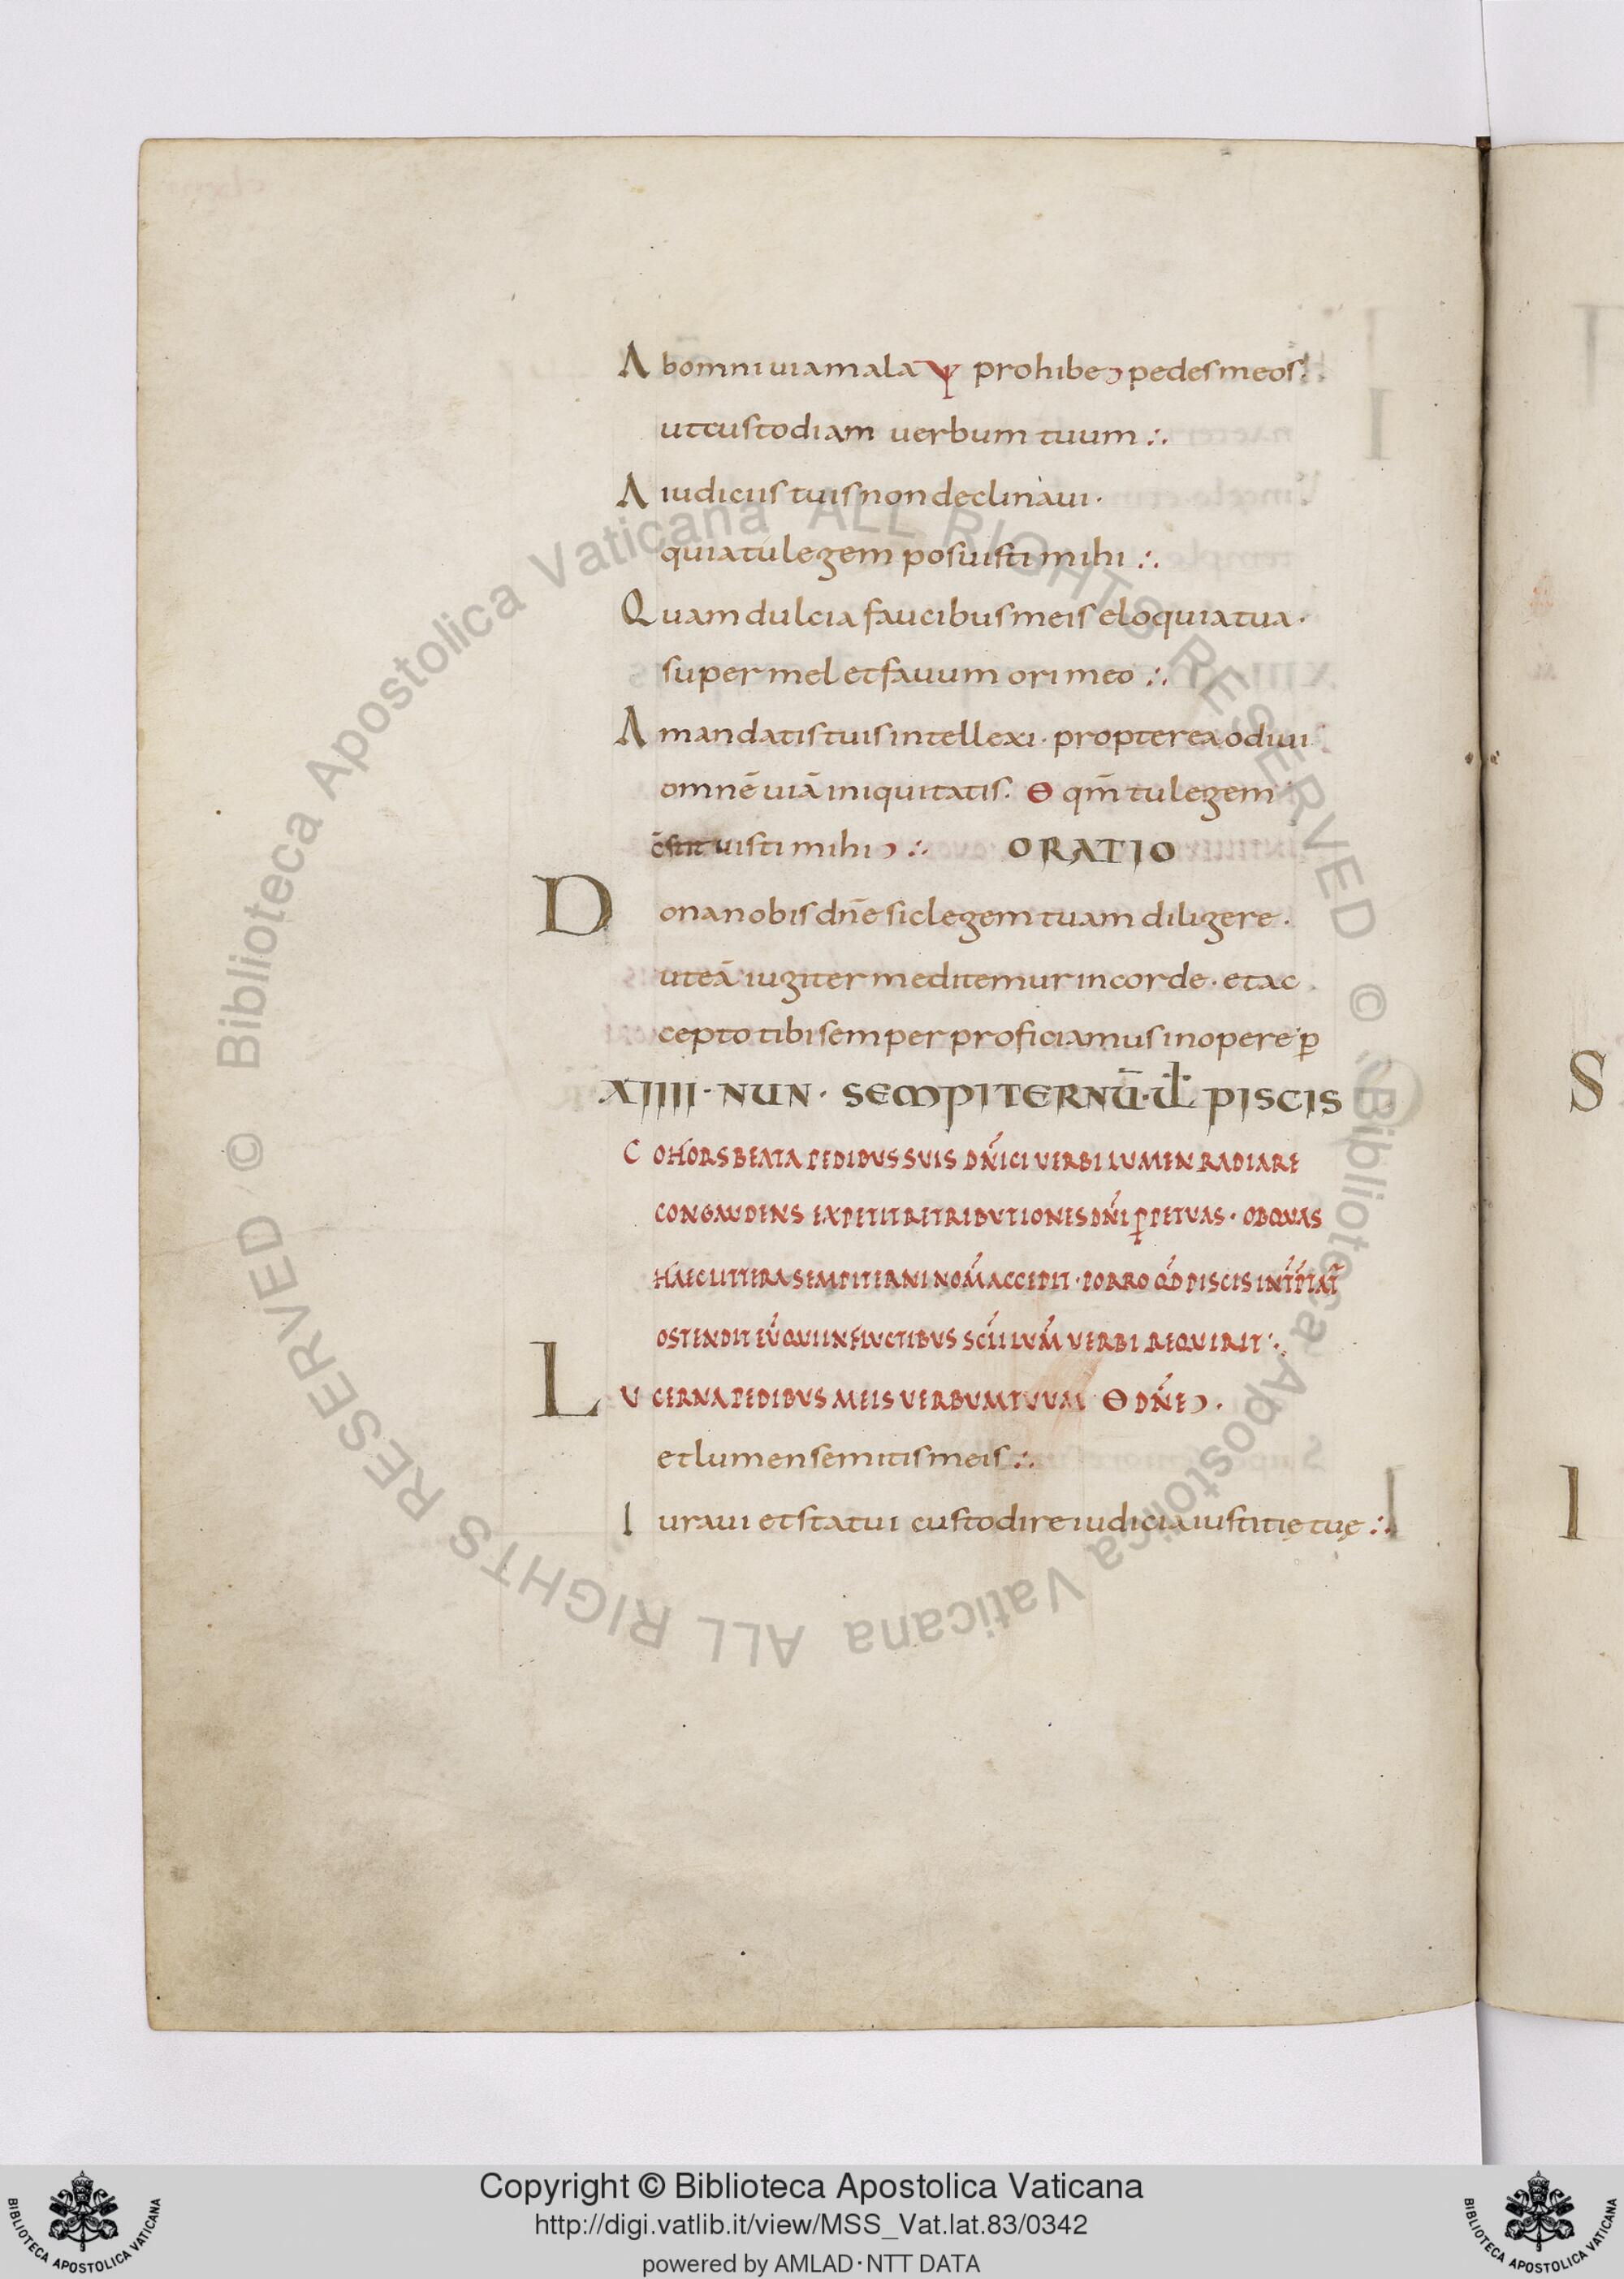 A bomni uiamala Ѱ prohibeↄ pedesmeos.
utcustodiam uerbum tuum ∴
A iudiciis tuis non declinaui ·
quia tu legem posuisti mihi ∴
Q uam dulcia faucibus meis eloquia tua ·
super mel et fauum ori meo ∴
A mandatis tuis intellexi · propterea odiui
omnē uiā iniquitatis. Ɵ qm̄ tu legem
c̄stituisti mihi ↄ ∴ ORATIO
D ona nobis dn̄e sic legem tuam diligere ·
ut eā iugiter meditemur in corde · et ac
cepto tibi semper proficiamus in opere · p̄
XIIII · NUN · SEMPITERNŪ · Ul̄ PISCIS
C OHORS BEATA PEDIBUS SUIS DN̄ICI UERBI LUMEN RADIARE
CONGAUDENS EXPETIT RETRIBUTIONES DN̄I P̄PETUAS · OBQUAS
HAEC LITTERA SEMPITERNI NOM̄ ACCEPIT · PORRO QD̄ PISCIS INT̄P̄TAT̄
OSTENDIT EŪ QUI IN FLUCTIBUS SCLĪ LUM̄ UERBI REQUIRIT ∴
LU CERNA PEDIBUS MEIS UERBUM TUUM Ɵ DN̄E ↄ ·
et lumen semitis meis ∴
I uraui et statui custodire iudicia iustitię tuę ∴
S
I
© Biblioteca Apostolica Vaticana ALL RIGHTS RESERVED
© Biblioteca Apostolica Vaticana ALL RIGHTS RESERVED
Copyright © Biblioteca Apostolica Vaticana
http://digi.vatlib.it/view/MSS_Vat.lat.83/0342
powered by AMLAD·NTT DATA
BIBLIOTECA APOSTOLICA VATICANA
BIBLIOTECA APOSTOLICA VATICANA